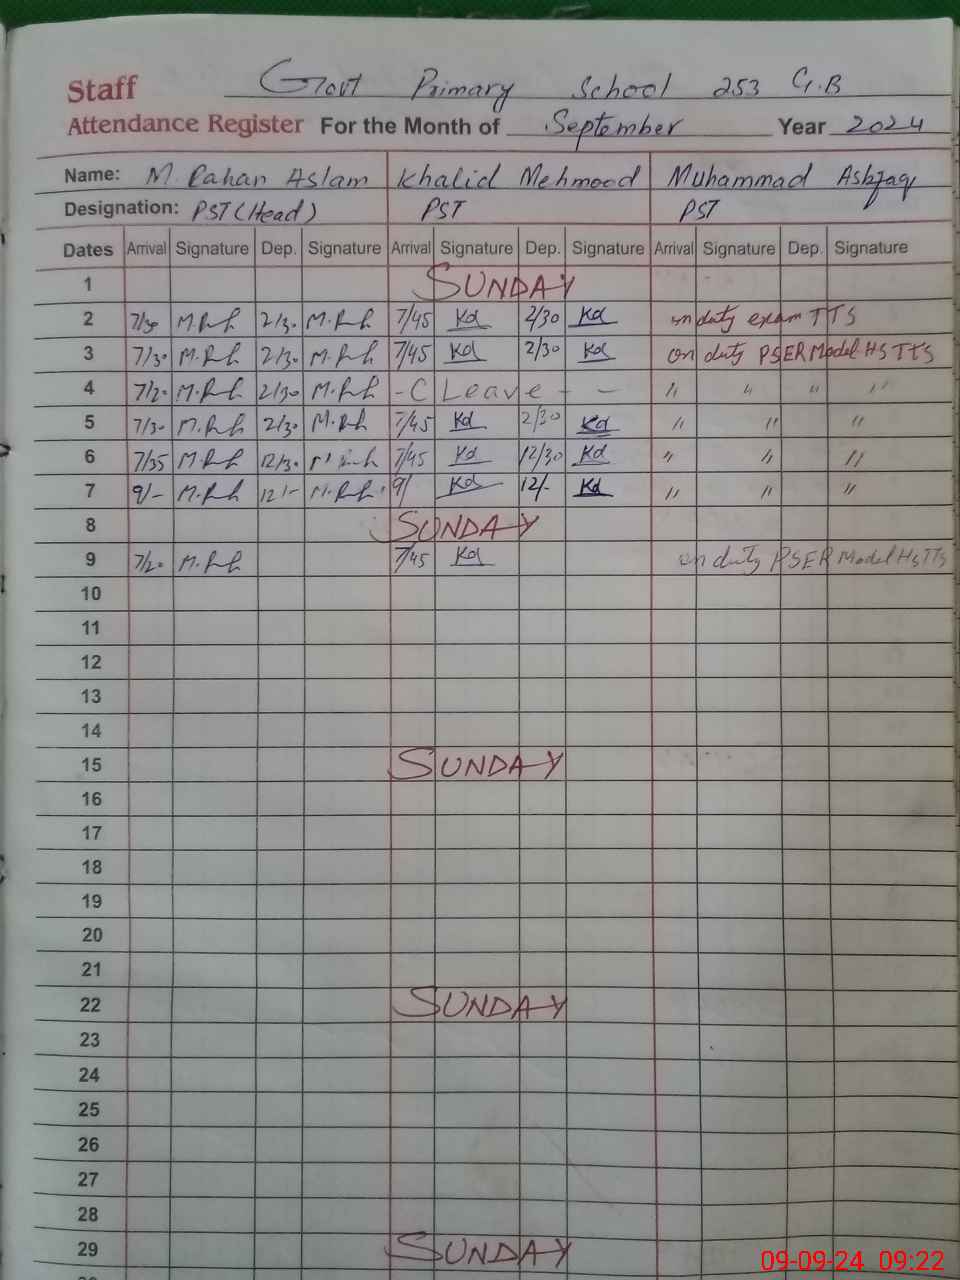 Staff Govt Primary School 253 G.B
Attendance Register For the Month of September Year 2024
Name: M. Rahan Aslam Khalid Mehmood Muhammad Ashfaq
Designation: PST (Head) PST PST
Dates Arrival Signature Dep. Signature Arrival Signature Dep. Signature Arrival Signature Dep. Signature
1 SUNDAY
2 7/30 2/30 7/45 Kd 2/30 Kd on duty exam TTS
3 7/30 2/30 7/45 Kd 2/30 Kd on duty PSER Model HS TTS
4 7/20 2/30 - C Leave - - " " " "
5 7/30 2/30 7/45 Kd 2/30 Kd " " "
6 7/35 12/30 7/45 Kd 12/30 Kd " " "
7 9/- 12/- 9/ Kd 12/- Kd " " "
8 SUNDAY
9 7/20 7/45 Kd on duty PSER Model HS TTS
10
11
12
13
14
15 SUNDAY
16
17
18
19
20
21
22 SUNDAY
23
24
25
26
27
28
29 SUNDAY
09-09-24 09:22